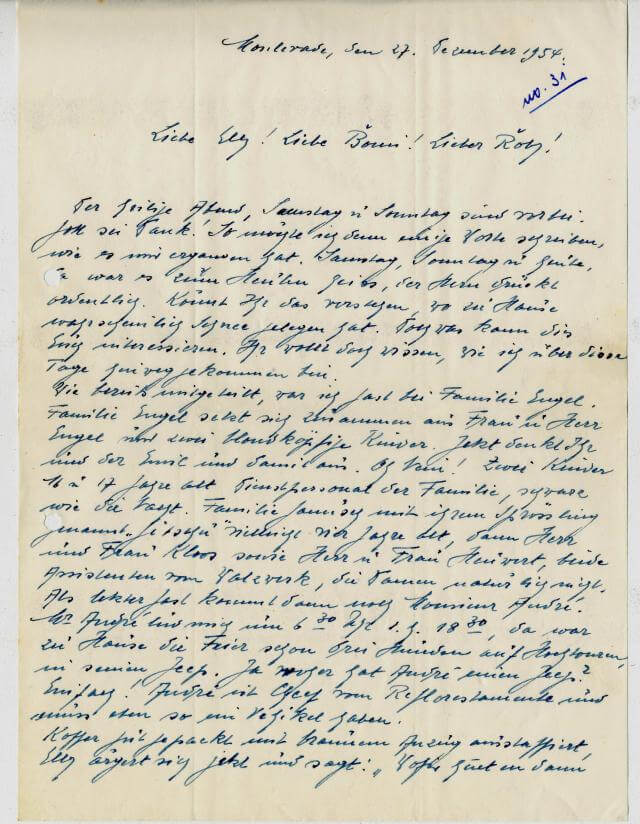 Monlevade, den 27. Dezember 1954.
no. 31
Liebe Elly! Liebe Bömi! Lieber Röby!
Der heilige Abend, Samstag u Sonntag sind vorbei.
Gott sei Dank! So möchte ich denn einige Worte schreiben,
wie es mir ergangen hat. Samstag, Sonntag u heute,
ja war es zum Heulen heiss, der Hem drückt
ordentlich. Könnt Ihr das verstehen, wo zu Hause
wahrscheinlich Schnee gelegen hat. Doch was kann dies
Euch interessieren. Ihr wollt doch wissen, wie ich über diese
Tage hinweg gekommen bin.
Wie bereits mitgeteilt, war ich Gast bei Familie Engel.
Familie Engel setzt sich zusammen aus Frau u Herr
Engel und zwei blondköpfige Kinder. Jetzt denkt Ihr
und der Emil und damit aus. Oh nein! Zwei Kinder
16 u 17 Jahre alt Dienstpersonal der Familie, schwarz
wie die Nacht. Familie mit ihrem Sprössling
genannt vielleicht vier Jahre alt, dann Herr
und Frau Kloos sowie Herr u Frau Heuvert, beide
Assistenten vom Walzwerk, die Damen natürlich nicht.
Als letzter Gast kommt dann noch Monsieur André.
Mr André lud mich um 6 30 Uhr d. h. 18 30, da war
zu Hause die Feier schon drei Stunden auf Hochtouren,
in seinen Jeep. Ja woher hat André einen Jeep?
Einfach! André ist Chef vom Reflorestamento und
muss eben so ein Vehikel haben.
Koffer gut gepackt mit braunem Anzug ausstaffiert,
Elly ärgert sich jetzt und sagt: „ dann